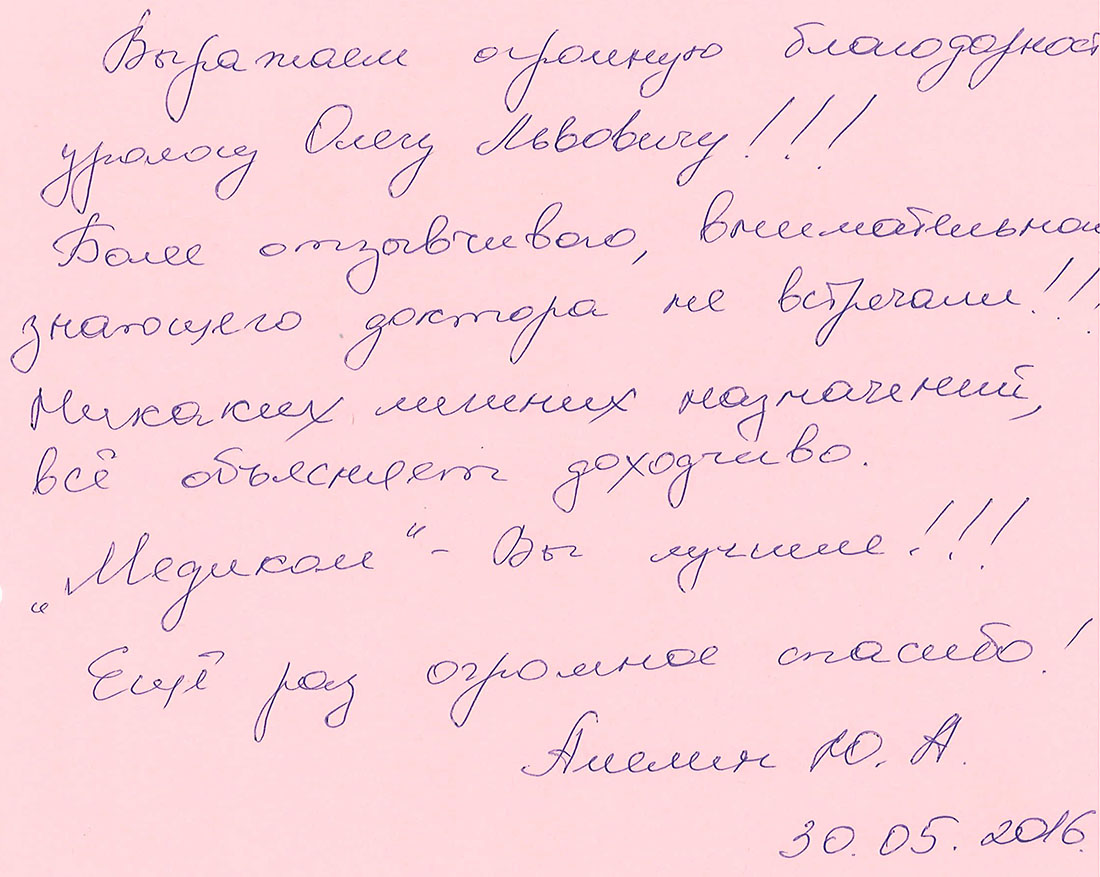 Выражаем огромную благодарност
урологу Олегу Львовичу!!!
Более отзывчивого, внимательног
знающего доктора не встречали!!!
Никаких лишних назначений,
всё объясняет доходчиво.
„Медиком“ - Вы лучшие!!!
Ещё раз огромное спасибо!
Ю. А.
30.05.2016